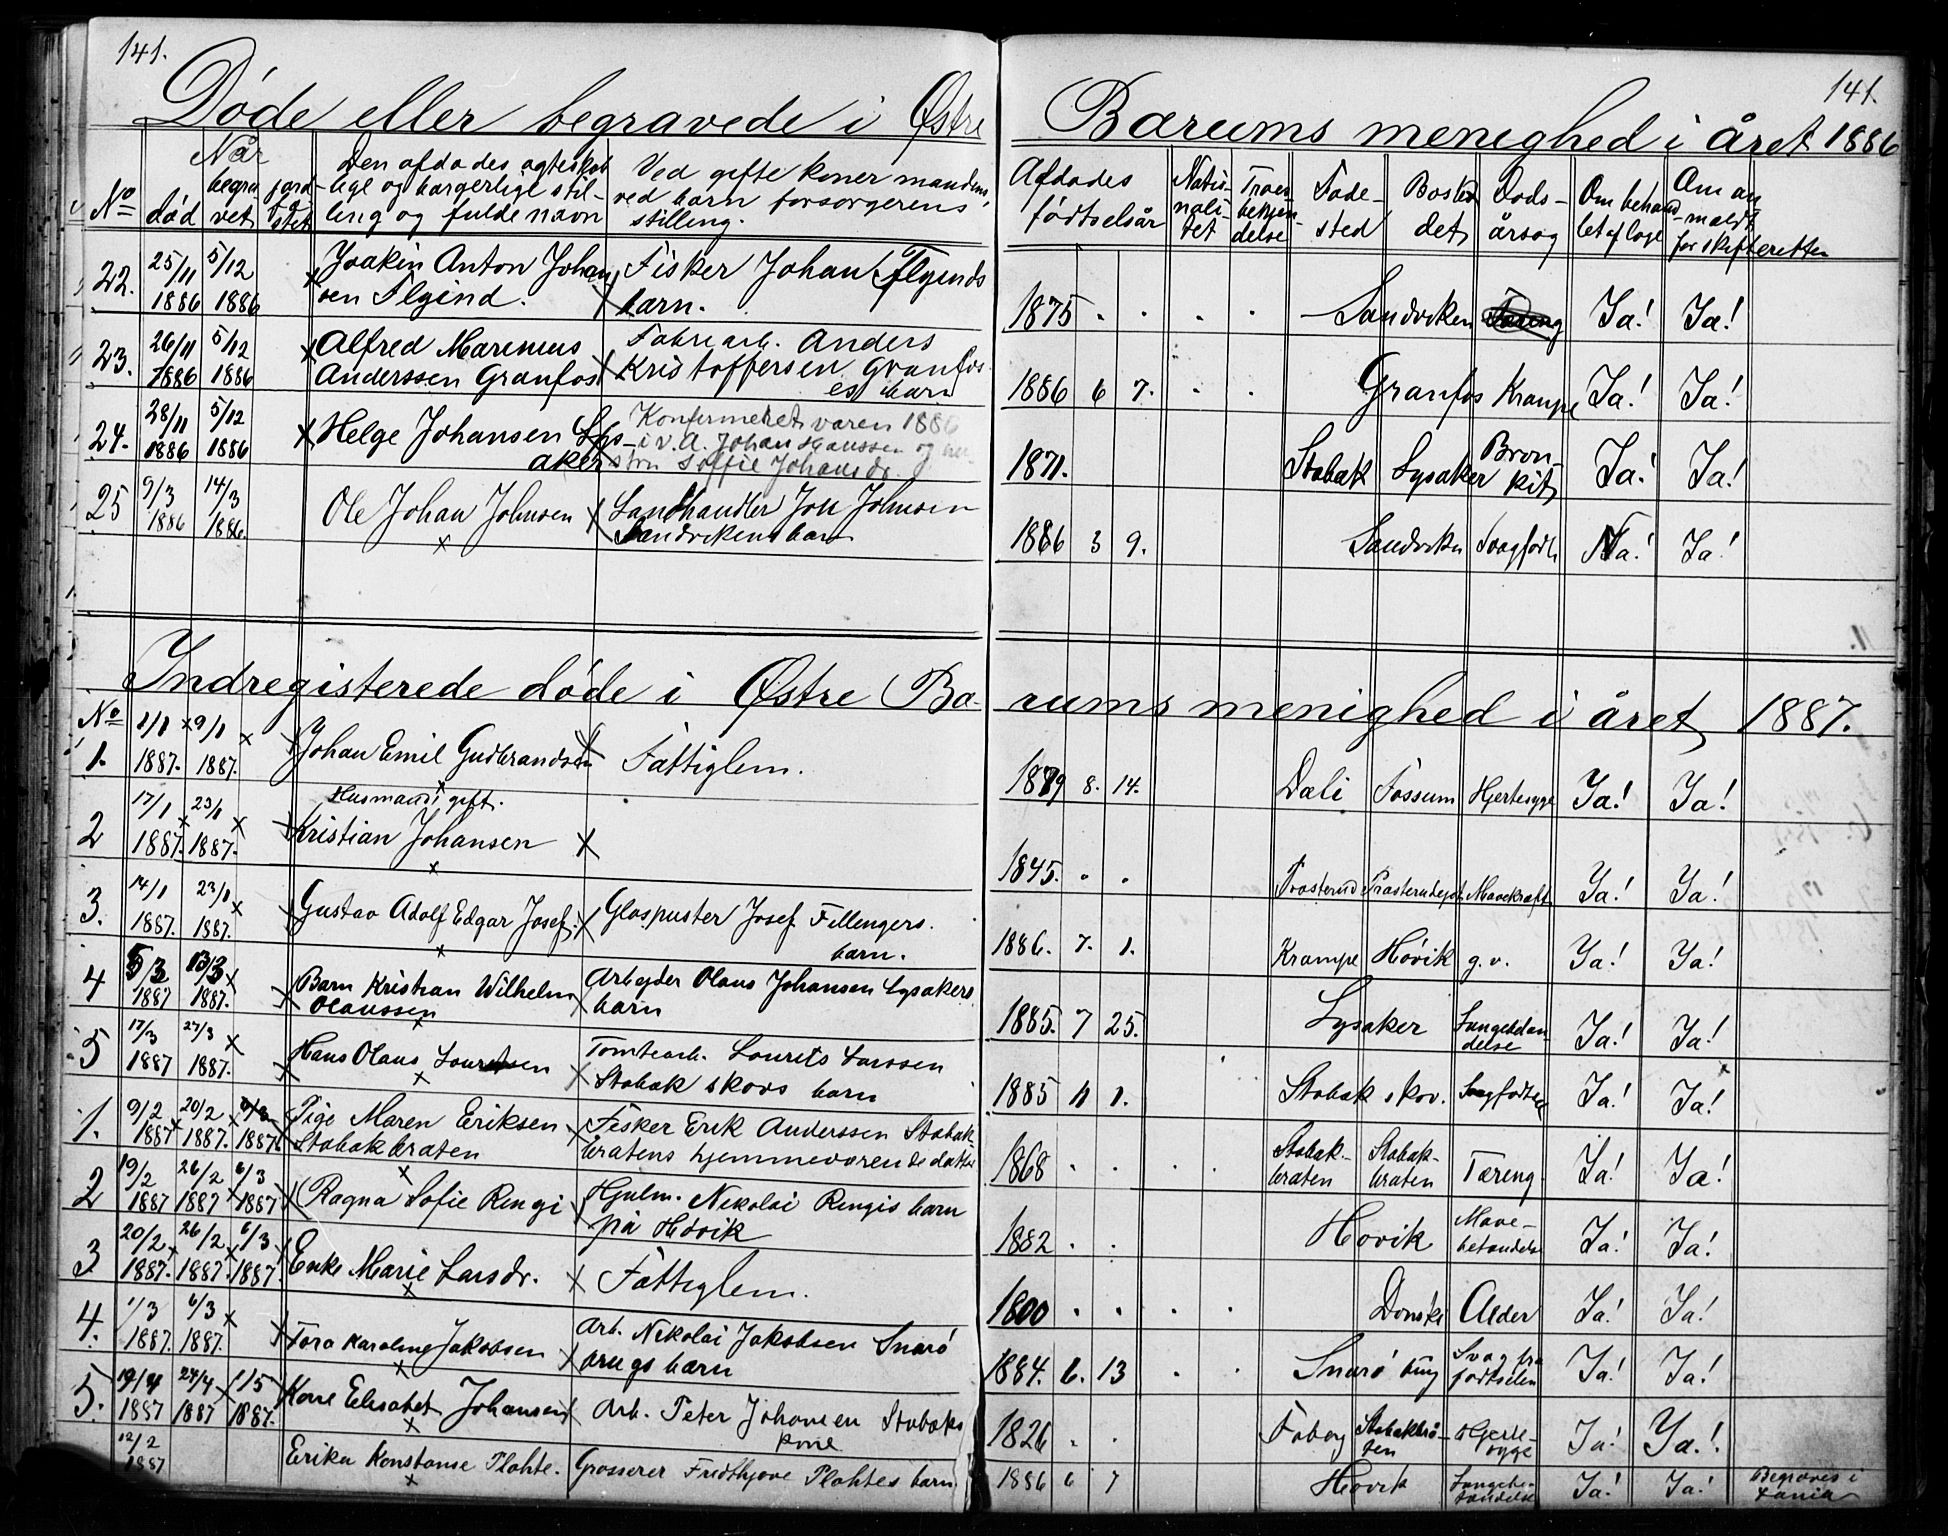 141.
141.
Døde eller begravede i Østre Bærums menighed i året 1886
Når
No død begra- vet jord- fæstet
Den afdødes ægteskabe- lige og borgerlige stil- ling og fulde navn
Ved gifte koner mandens, ved barn forsørgerens stilling.
Afdødes fødselsår
Natio- nali- tet
Troes- bekjen- delse
Føde- sted
Bostedet
Døds- årsag
Om behand- let af læge
Om an- meldt for skifteretten
22. 25/11 1886 5/12 1886 Joakin Anton Johan- sen Flgind. Fisker Johan Flginds barn. 1875 Sandviken Ja! Ja!
23. 26/11 1886 5/12 1886 Alfred Marinius Anderssen Granfos Fabrikarb. Anders Kristoffersen Granfos- es barn 1886 6 7. Granfos Krampe Ja! Ja!
24. 28/11 1886 5/12 1886 Helge Johansen Lys- aker Konfirmeret våren 1886 i v. A. Johan Hanssen og hu- stru Soffie Johansdr. 1871. Stabæk Lysaker Bron- kit Ja! Ja!
25 9/3 1886 14/3 1886 Ole Johan Johnsen Landhandler Jon Johnsen Sandvikens barn 1886 3 9. Sandviken Svagfødt Na! Ja!
Indregisterede døde i Østre Bæ- rums menighed i året 1887.
No
1. 1/1 1887. 9/1 1887. Johan Emil Gudbrandsen Fattiglem. 1879 8. 14. Dæli Fossum Hjertesyge Ja! Ja!
2 17/1 1887. 23/1 1887. Husmand gift. Kristian Johansen 1845. Mavekræft Ja! Ja!
3. 14/1 1887. 23/1 1887. Gustav Adolf Edgar Josef. Glaspuster Josef Fillengers. barn. 1886. 7. 1. Krampe Høvik g. v. Ja! Ja!
4 5/3 1887 13/3 1887. Barn Kristian Wilhelm Olaussen Arbejder Olaus Johansen Lysakers barn 1885. 7 25. Lysaker Lungebetændelse Ja! Ja!
5 17/3 1887 27/3 1887. Hans Olaus Lauritsen Tomtearb. Lourits Larssen Stabæk skovs barn 1885 11 1. Stabæk skov. Svagfødsel Ja! Ja!
1. 9/2 1887 20/2 1887. 6/3 1887 Pige Maren Eriksen Stabækbråten Fisker Erik Anderssen Stabæk- bråtens hjemmeværende datter 1868 Stabæk- bråten Stabæk- bråten Tæring Ja! Ja!
2 19/2 1887 26/2 1887 6/3 1887 Ragna Sofie Ringi Hjulm. Nikolai Ringis barn på Høvik 1882 Høvik Mave- betændelse Ja! Ja!
3 20/2 1887. 26/2 1887. 6/3 1887. Enke Marie Larsdr. Fattiglem. 1800 Donski Alder Ja! Ja!
4. 1/3 1887. 6/3 1887. Tora Karoline Jakobsen Arb. Nikolai Jakobsen Snarø brugs barn 1884. 6. 13 Snarø brug Svag fra fødselen Ja! Ja!
5. 19/4 1887 24/4 1887 1/5 1887. Kone Elisabet Johansen Arb. Peter Johansen Stabæks kone 1826 Foberg Stabækbrå- ten Hjerte- syge Ja! Ja!
12/2 1887 Erika Konstanse Plahte. Grosserer Fridthjove Plahtes barn 1886 6 7 Høvik Lungebe- tændelse Ja! Ja! Begraves i